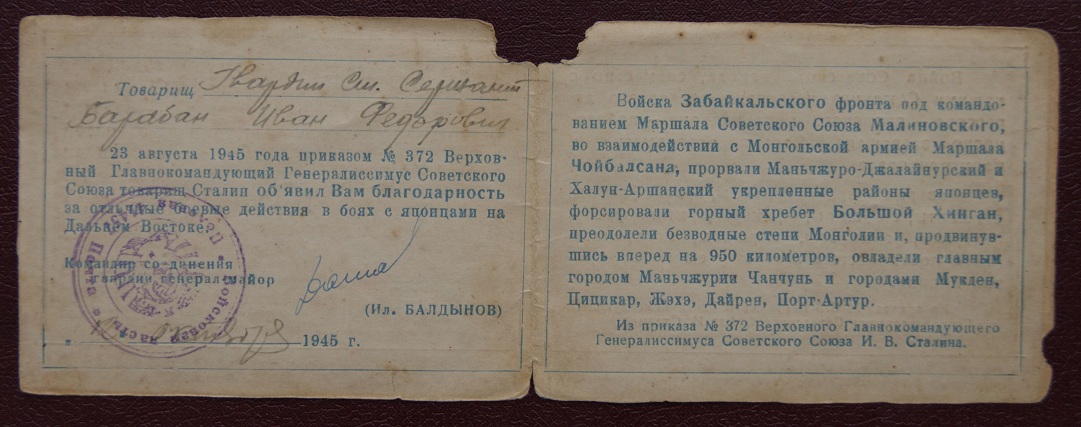 Товарищ Гвардии Ст. Сержант
Барабан Иван Федорович
23 августа 1945 года приказом № 372 Верхов-
ный Главнокомандующий Генералиссимус Советского
Союза товарищ Сталин об'явил Вам благодарность
за отличные боевые действия в боях с японцами на
Дальнем Востоке.
Командир соединения
гвардии генерал-майор
(Ил. БАЛДЫНОВ)
октября 1945 г.
Войсковая часть
Войска Забайкальского фронта под командо-
ванием Маршала Советского Союза Малиновского,
во взаимодействии с Монгольской армией Маршала
Чойбалсана, прорвали Маньчжуро-Джалайнурский и
Халун-Аршанский укрепленные районы японцев,
форсировали горный хребет Большой Хинган,
преодолели безводные степи Монголии и, продвинув-
шись вперед на 950 километров, овладели главным
городом Маньчжурии Чанчунь и городами Мукден,
Цицикар, Жэхэ, Дайрен, Порт-Артур.
Из приказа № 372 Верховного Главнокомандующего
Генералиссимуса Советского Союза И. В. Сталина.